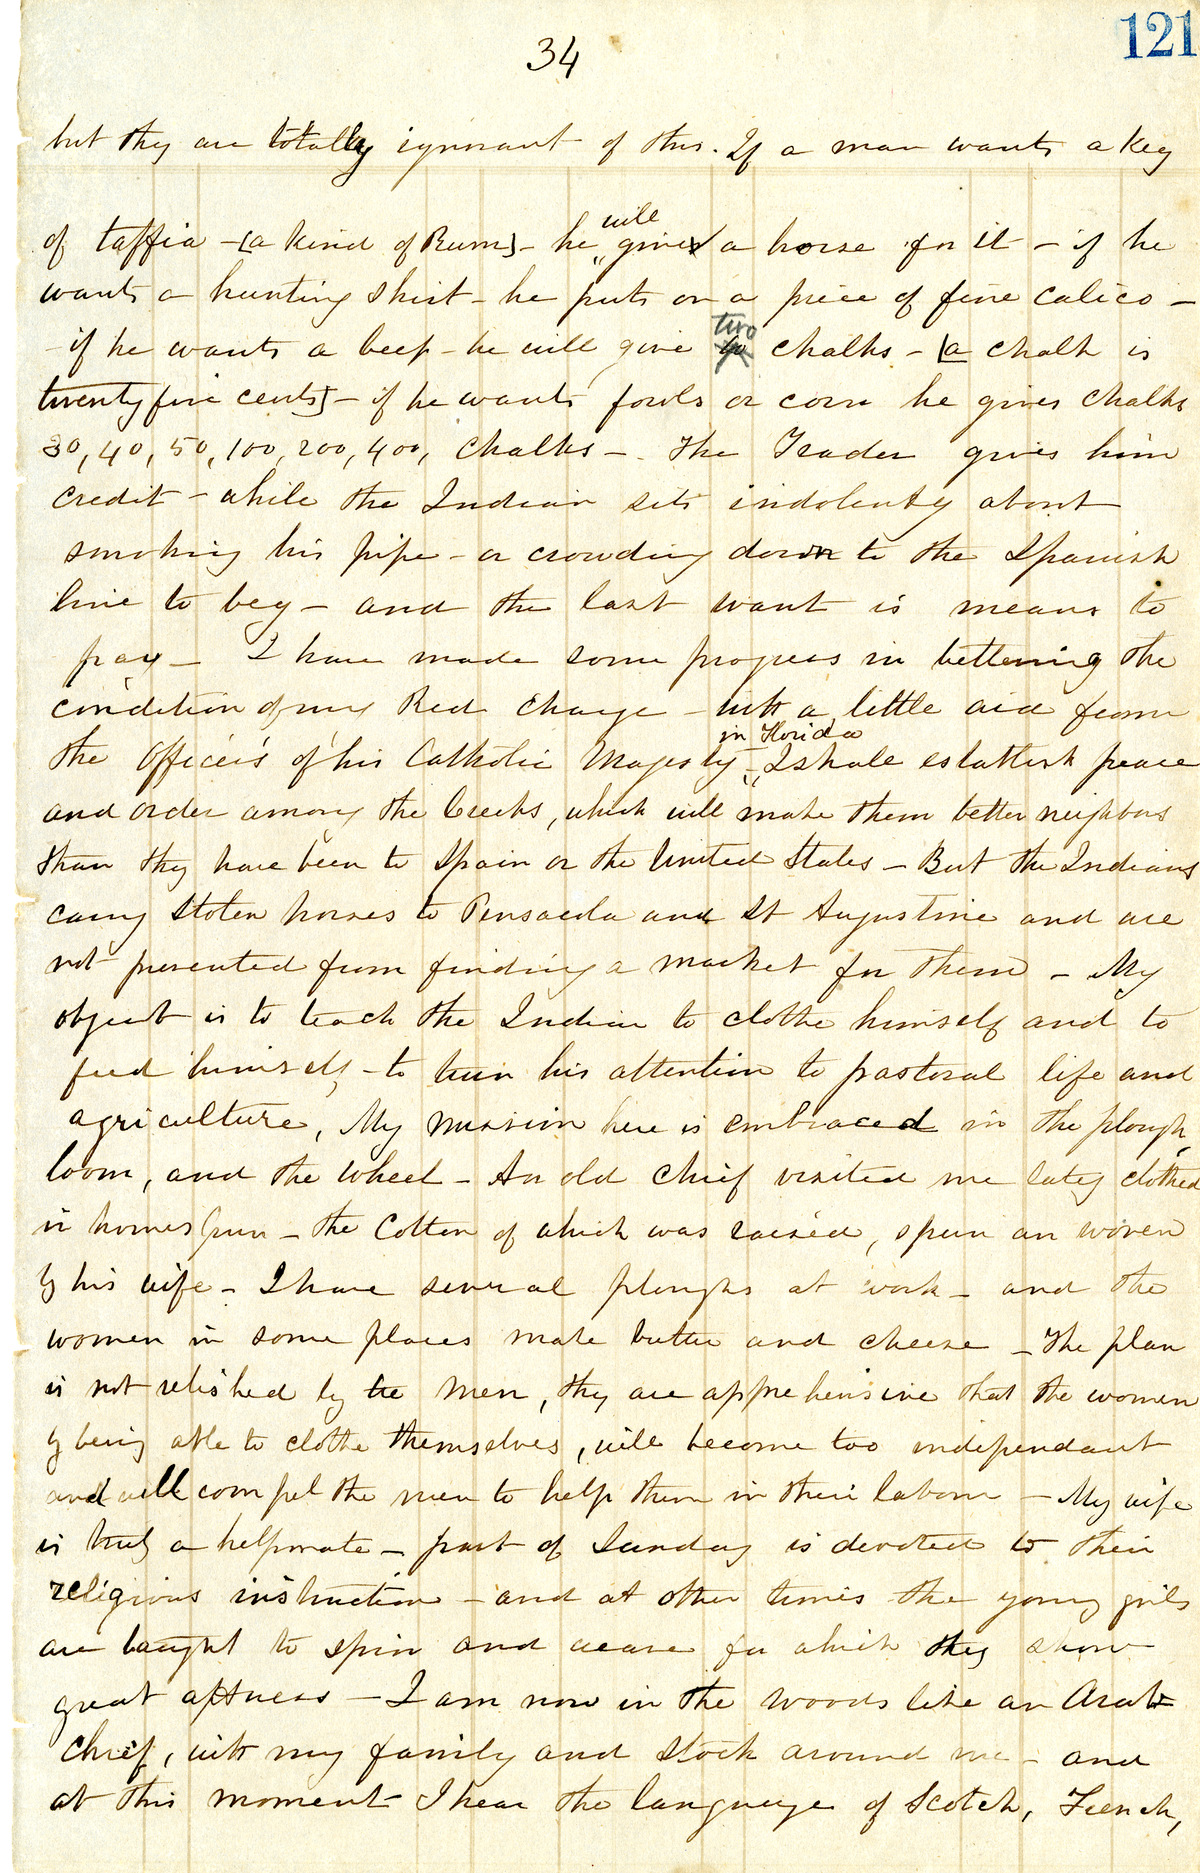 121
34
but they are totally ignorant of this. If a man wants a keg
of taffia - [a kind of Rum] - he will give a horse for it - if he
wants a hunting shirt - he puts on a piece of fine calico -
if he wants a beef - he will give two chalks - [a chalk is
twenty five cents] - if he wants fowls or corn he gives chalks
30, 40, 50, 100, 200, 400, chalks - The Trader gives him
credit - while the Indian sits indolently about
smoking his pipe - or crowding down to the Spanish
line to beg - and the last want is means to
pay - I have made some progress in bettering the
condition of my Red charge - with a little aid from
the Officers of his Catholic Majesty in Florida - I shall establish peace
and order among the Creeks, which will make them better neighbors
than they have been to Spain or the United States - But the Indians
carry stolen horses to Pensacola and St Augustine and are
not prevented from finding a market for them - My
object is to teach the Indian to clothe himself and to
feed himself, - to turn his attention to pastoral life and
agriculture, My mission here is embraced in the plough,
loom, and the wheel - An old chief visited me lately clothed
in homespun - the Cotton of which was raised, spun an woven
by his wife - I have several ploughs at work - and the
women in some places make butter and cheese - The plan
is not relished by the men, they are apprehensive that the women
by being able to clothe themselves, will become too independant
and will compel the men to help them in their labour - My wife
is truly a helpmate - part of Sunday is devoted to their
religious instruction - and at other times the young girls
are taught to spin and weave for which they show
great aptness - I am now in the woods like an Arab
chief, with my family and stock around me - and
at this moment I hear the language of Scotch, French,